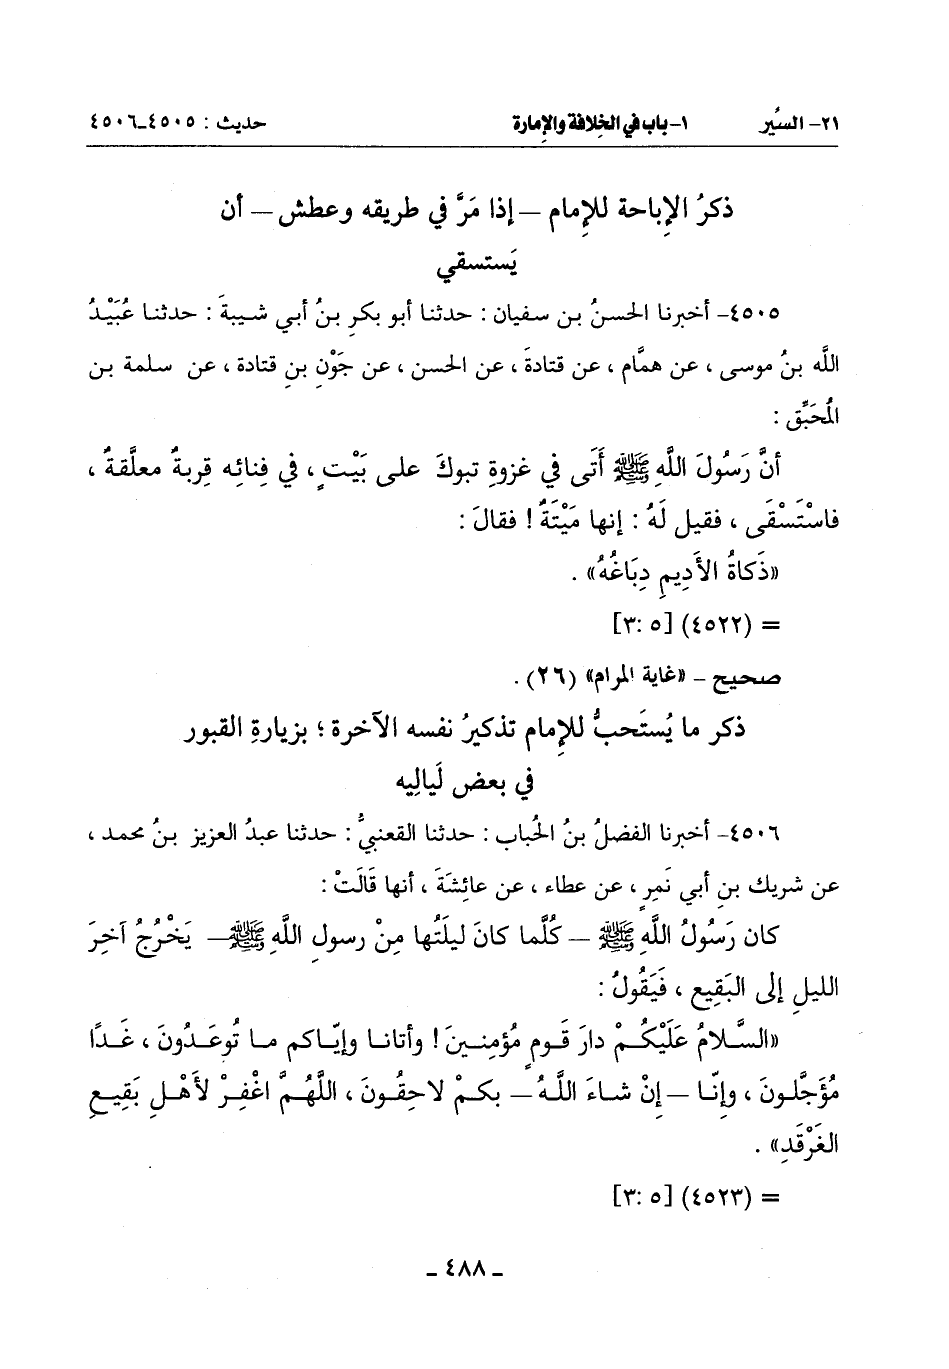 ٢١- السِّيَر ١- باب في الخِلافة والإمارة حديث : ٤٥٠٥-٤٥٠٦
ذكرُ الإباحة للإمام – إذا مَرَّ في طريقه وعطش – أن
يَستسقي
٤٥٠٥- أخبرنا الحسنُ بن سفيان : حدثنا أبو بكرِ بنُ أبي شيبةَ : حدثنا عُبَيْدُ
اللَّه بنُ موسى ، عن همَّام ، عن قتادةَ ، عن الحسن ، عن جَوْنِ بنِ قتادة ، عن سلمة بن
المُحَبِّق :
أنَّ رَسُولَ اللَّهِ ﷺ أَتَى في غزوةِ تبوكَ على بَيْتٍ ، في فِنائِه قِربةٌ معلَّقةٌ ،
فاسْتَسْقَى ، فقيل لَهُ : إنها مَيْتَةٌ ! فقالَ :
«ذَكاةُ الأَديمِ دِبَاغُهُ» .
= (٤٥٢٢) [٥ :٣]
صحيح – «غاية المرام» (٢٦) .
ذكر ما يُستَحبُّ للإمام تذكيرُ نفسه الآخرة ؛ بزيارةِ القبور
في بعض لَيالِيه
٤٥٠٦- أخبرنا الفضلُ بنُ الحُباب : حدثنا القعنبيُّ : حدثنا عبدُ العزيز بنُ محمد ،
عن شريك بنِ أبي نَمِرٍ ، عن عطاء ، عن عائِشَةَ ، أنها قَالَتْ :
كان رَسُولُ اللَّهِ ﷺ – كُلَّما كانَ ليلَتُها مِنْ رسولِ اللَّهِ ﷺ – يَخْرُجُ آخِرَ
الليلِ إلى البَقِيع ، فَيَقُولُ :
«السَّلامُ عَلَيْكُمْ دارَ قَومٍ مُؤمِنينَ ! وأتانا وإيّاكم ما تُوعَدُونَ ، غَداً
مُؤَجَّلونَ ، وإنّا – إنْ شاءَ اللَّهُ – بكمْ لاحِقُونَ ، اللَّهُمَّ اغْفِرْ لأَهْلِ بَقِيعِ
الغَرْقَدِ» .
= (٤٥٢٣) [٥ :٣]
– ٤٨٨ –